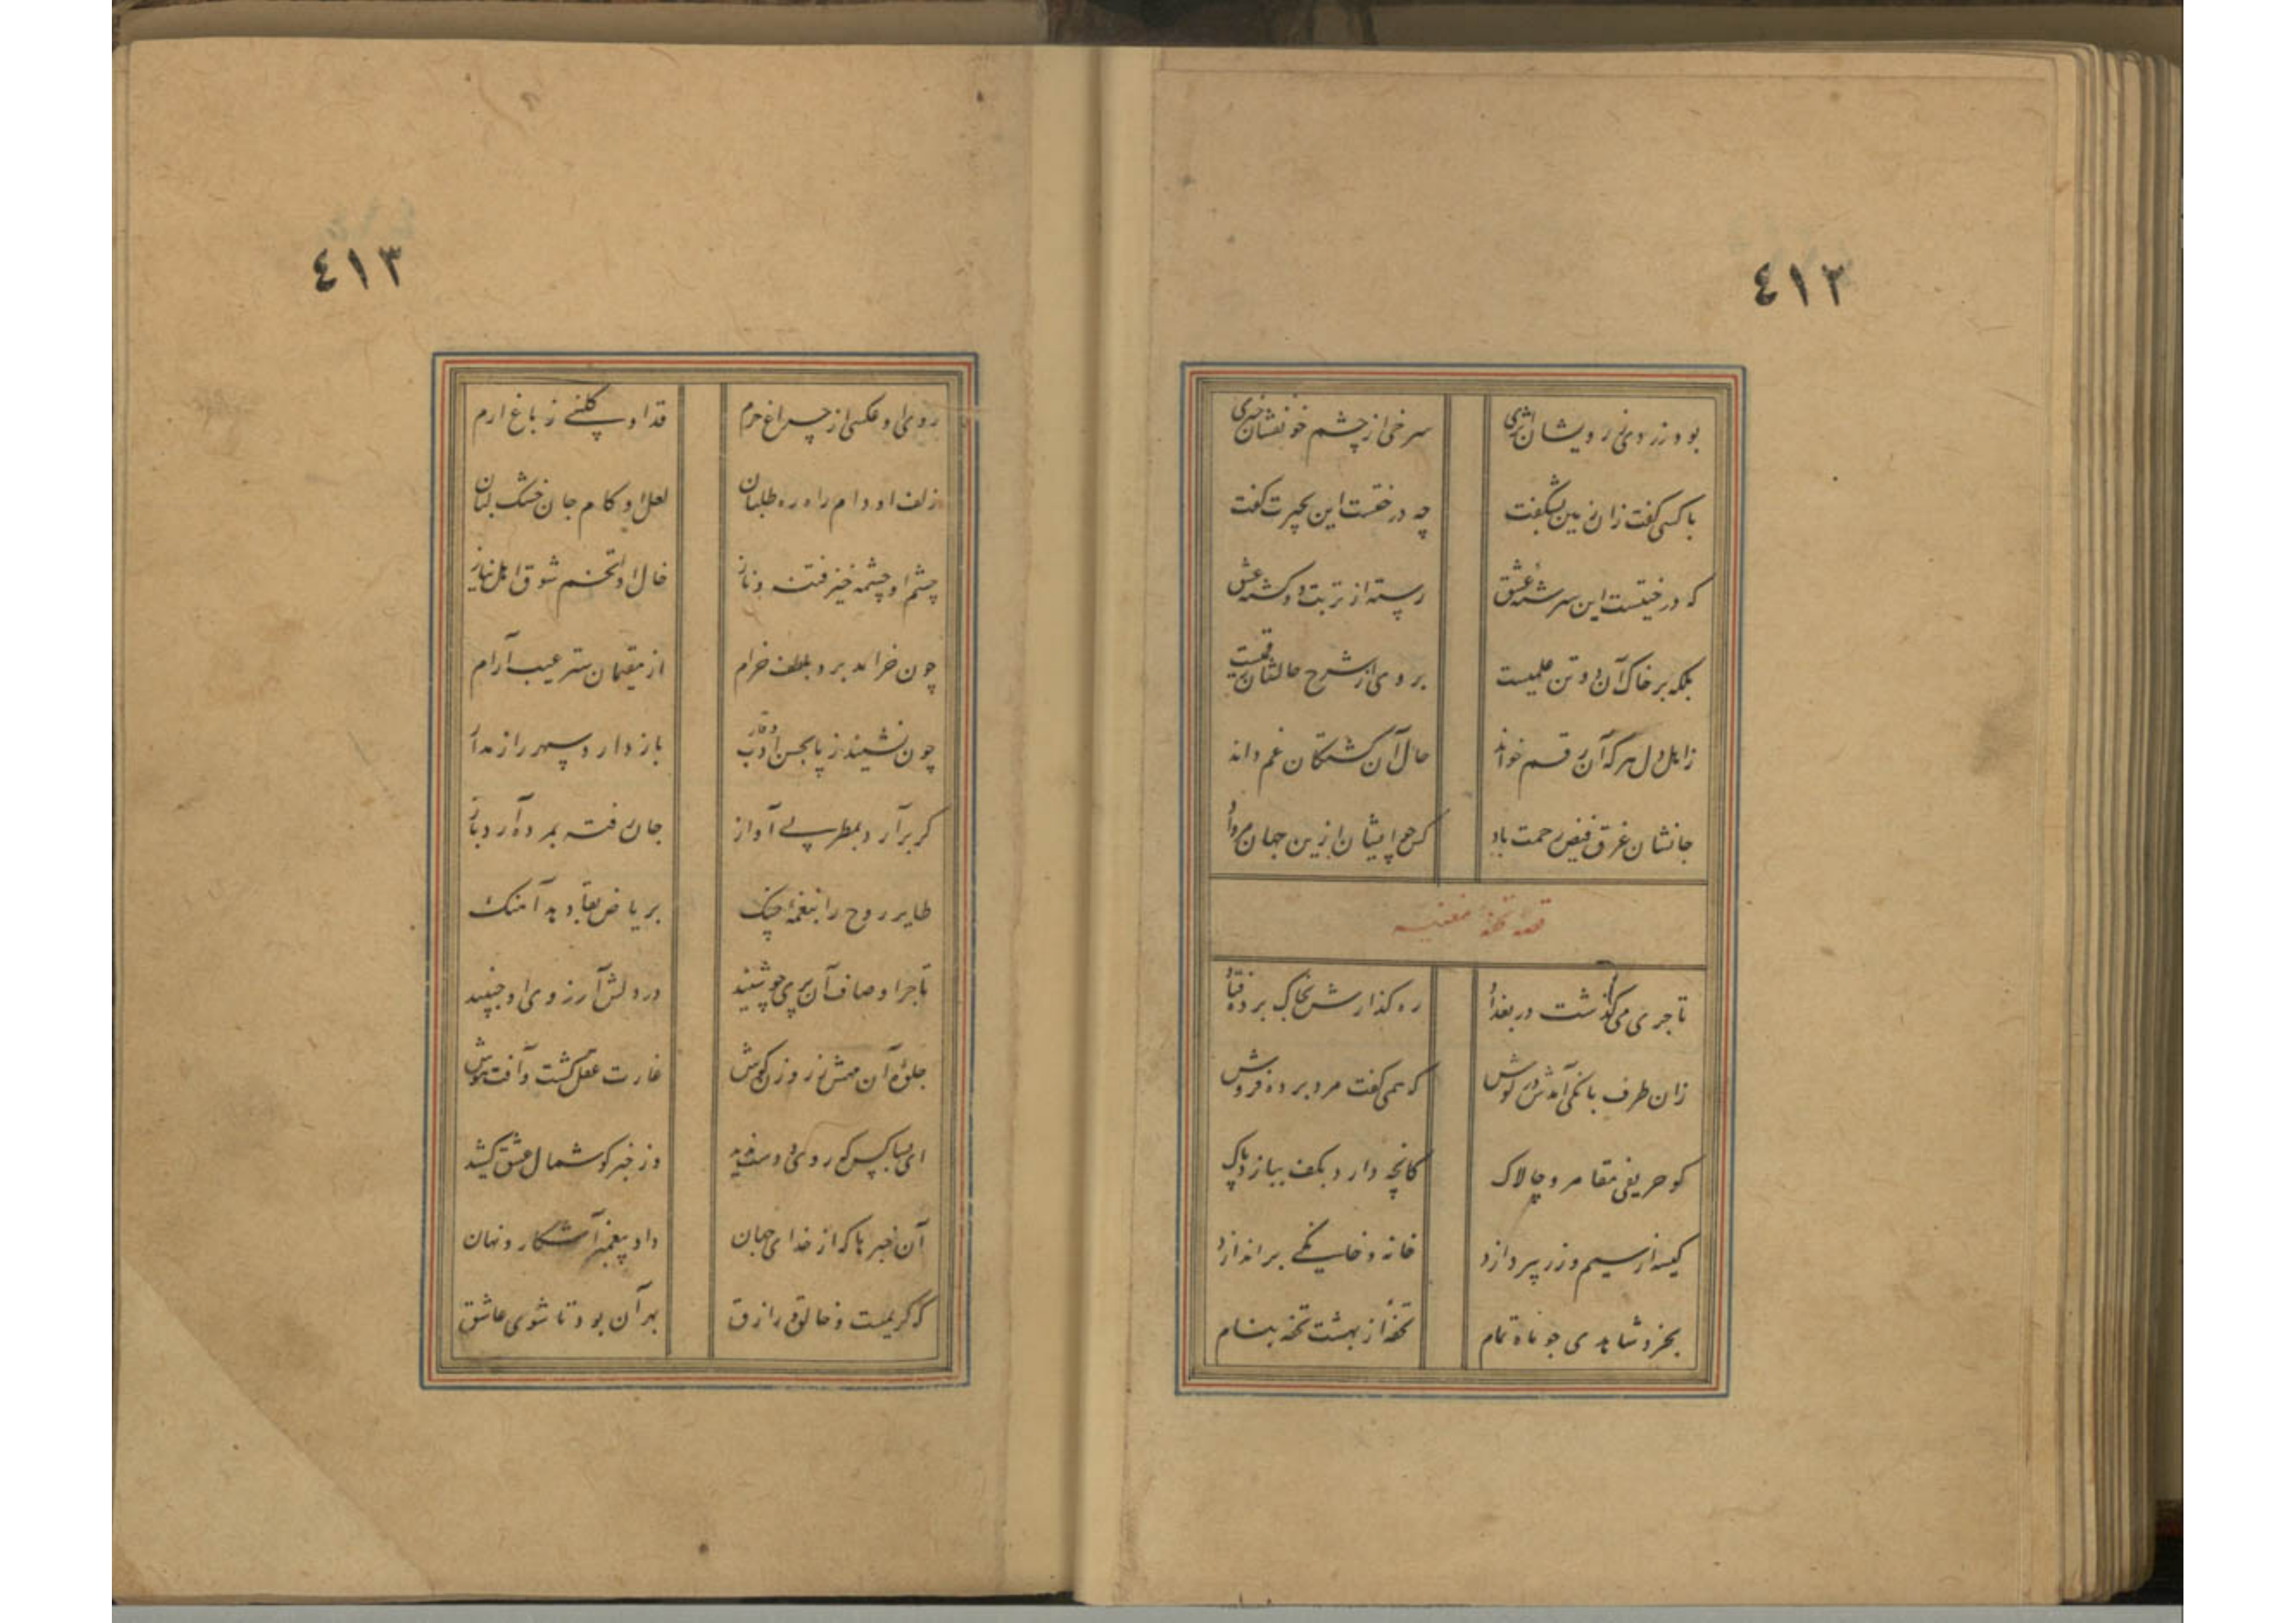 ٤١٢
بود زردی ز رویشان اثری سرخی از چشم خونفشان خبری
با کسی گفت زان زمین بشگفت چه درختست این بحیرت گفت
که درختیست این سرشته عشق رسته از تربت دو کشته عشق
بلکه بر خاک آن دو تن علمیست بر وی از شرح حالشان رقمیست
ز اهل دل هر که آن رقم خواند حال آن کشتگان غم داند
جانشان غرق فیض رحمت باد کس چو ایشان ازین جهان مرواد
قصه تحفه مغنیه
تاجری می‌گذشت در بغداد ره گذارش بخاک برده فتاد
زان طرف بانگی آمدش در گوش که همی گفت مرد برده فروش
کو حریفی مقامر و چالاک کانچه دارد بکف ببازد پاک
کیسه از سیم و زر بپردازد خانه و خانگی براندازد
بخرد شاهدی چو ماه تمام تحفه‌ٔ از بهشت تحفه بنام
٤١٣
روی او عکسی از چراغ حرم قد او گلبنی ز باغ ارم
زلف او دام راه ره طلبان لعل او کام جان خشک لبان
چشم او چشمه خیز فتنه و ناز خال او تخم شوق اهل نیاز
چون خرامد برد بلطف خرام از مقیمان ستر عیب آرام
چون نشیند ز پا بحسن و وقار باز دارد سپهر را ز مدار
گر برآرد بمطربی آواز جان رفته بمرده آرد باز
طایر روح را بنغمهٔ چنگ بریاض بقا دهد آهنگ
تاجر اوصاف آن پری چو شنید در دلش آرزوی او جنبید
جلوهٔ آن مهش ز روزن گوش غارت عقل گشت و آفت هوش
ای بسا کس که روی دوست ندید وز خبر گوشمال عشق کشید
آن خبرها که از خدای جهان داد پیغمبر آشکار و نهان
که کریمست و خالق و رازق بهر آن بود تا شوی عاشق